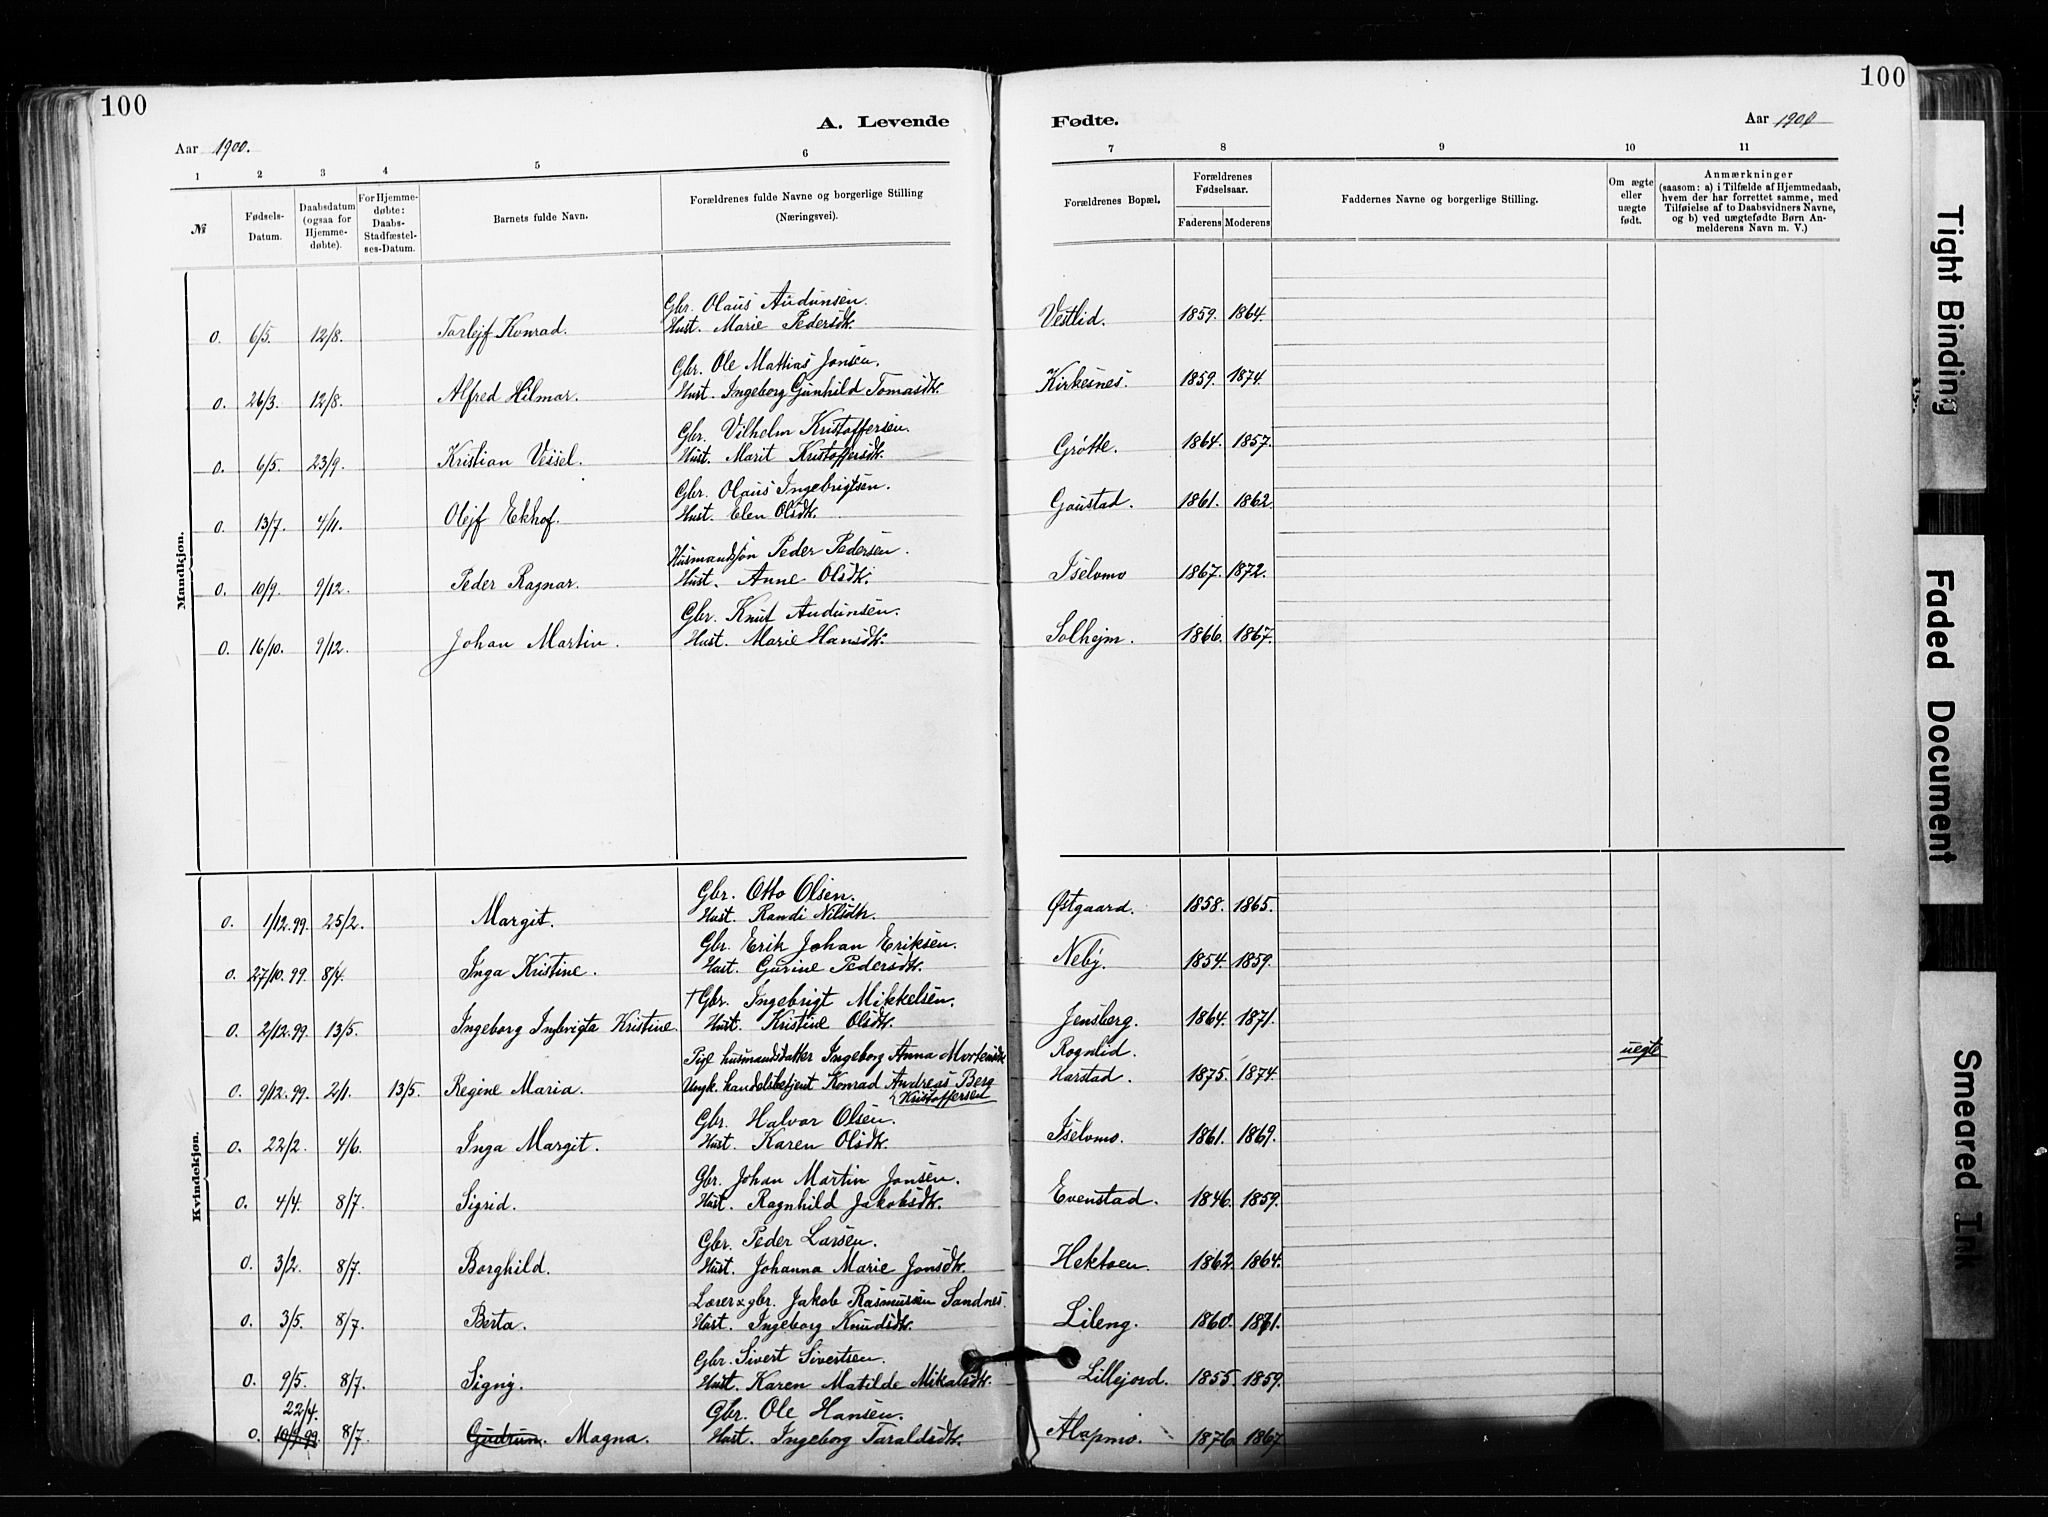 100
A. Levende
Aar 1900.
1 2 3 4 5 6
№
Fødsels-
Datum.
Daabsdatum
(ogsaa for
Hjemme-
døbte).
For Hjemme-
døbte:
Daabs-
Stadfæstel-
ses-Datum.
Barnets fulde Navn.
Forældrenes fulde Navne og borgerlige Stilling
(Næringsvei).
Mandkjøn.
Gbr. Olaus Audunsen.
0. 6/5. 12/8. Torlejf Konrad. Hust. Marie Pedersdtr.
Gbr. Ole Mattias Jonsen.
0. 26/3. 12/8. Alfred Hilmar. Hust. Ingeborg Gunhild Tomasdtr.
Gbr. Vilhelm Kristoffersen.
0. 6/5. 23/9. Kristian Vessel. Hust. Marit Kristoffersdtr.
Gbr. Olaus Ingebrigtsen.
0. 13/7. 4/11. Olejf Ekhof. Hust. Elen Olsdtr.
Husmandssøn Peder Pedersen.
0. 10/9. 9/12. Peder Ragnar. Hust. Anne Olsdtr.
Gbr. Knut Audunsen.
0. 16/10. 9/12. Johan Martin. Hust. Marie Hansdtr.
Kvindekjøn.
Gbr. Otto Olsen.
0. 1/12.99. 25/2. Margit. Hust. Randi Nilsdtr.
Gbr. Erik Johan Eriksen.
0. 27/10.99. 8/4. Inga Kristine. Hust. Gurine Pedersdtr.
†Gbr. Ingebrigt Mikkelsen.
0. 2/12.99. 13/5. Ingeborg Ingbrigta Kristine. Hust. Kristine Olsdtr.
Pige husmandsdatter Ingeborg Anna Mortensdtr
0. 9/12.99. 2/1. 13/5. Regine Maria. Ungk. handelsbetjent Konrad Andreas Berg
Kristoffersen
Gbr. Halvor Olsen.
0. 22/2. 4/6. Inga Margit. Hust. Karen Olsdtr.
Gbr. Johan Martin Jonsen.
0. 4/4. 8/7. Sigrid. Hust. Ragnhild Jakobsdtr.
Gbr. Peder Larsen.
0. 3/2. 8/7. Borghild. Hust. Johanna Marie Jonsdtr.
Lærer & gbr. Jakob Rasmussen Sandnes.
0. 3/5. 8/7. Berta. Hust. Ingeborg Knudsdtr.
Gbr. Sivert Sivertsen.
0. 9/5. 8/7. Signy. Hust. Karen Matilde Mikalsdtr.
22/4. Gbr. Ole Hansen.
0. 10/9.99. 8/7. Gudrun. Magna. Hust. Ingeborg Taraldsdtr.
100
Fødte.
Aar 1900
7 8 9 10 11
Forældrenes Bopæl.
Forældrenes
Fødselsaar.
Faderens Moderens
Faddernes Navne og borgerlige Stilling.
Om ægte
eller
uægte
født.
Anmærkninger
(saasom: a) i Tilfælde af Hjemmedaab,
hvem der har forrettet samme, med
Tilføielse af to Daabsvidners Navne,
og b) ved uægtefødte Børn An-
melderens Navn m. V.)
Vestlid. 1859. 1864.
Kirkesnes. 1859. 1874.
Grøtte. 1864. 1857.
Gaustad. 1861. 1862
Iselvmo 1867. 1872.
Solhejm. 1866. 1867.
Østgaard. 1858. 1865.
Neby. 1854. 1859.
Jensberg. 1864. 1871.
Rognlid. uegte
Harstad. 1875. 1874.
Iselvmo. 1861. 1869.
Evenstad. 1846. 1859.
Hektoen. 1862 1864.
Lileng. 1860. 1871.
Lillejord. 1855. 1859.
Alapmo. 1876. 1867
Tight Binding
Faded Document
Smeared Ink